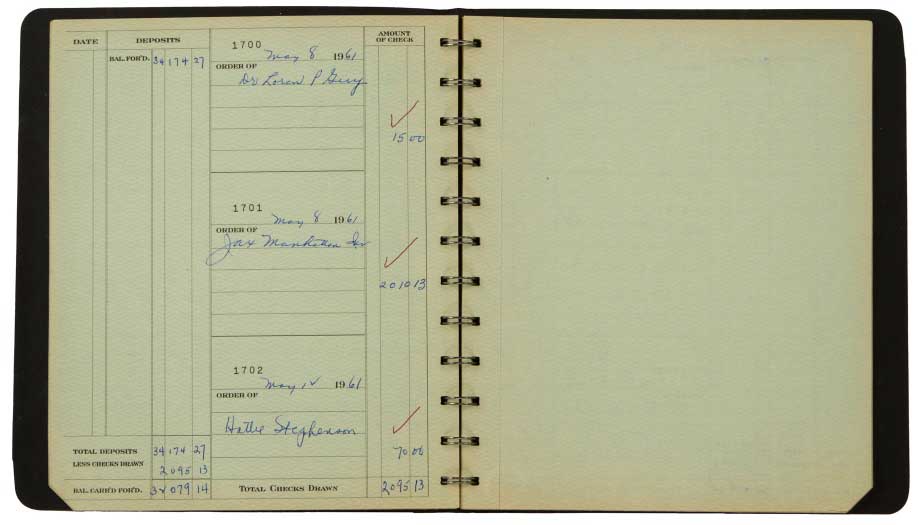 DATE DEPOSITS AMOUNT OF CHECK
BAL. FOR'D. 34 174 27
1700
May 8 1961
ORDER OF
Dr Loren P Guy
15 00
1701
May 8 1961
ORDER OF
Jax Manhattan Inc
2010 13
1702
May 12 1961
ORDER OF
Hattie Stephenson
70 00
TOTAL DEPOSITS 34 174 27
LESS CHECKS DRAWN 2 095 13
BAL. CARR'D FOR'D. 32 079 14
TOTAL CHECKS DRAWN 2095 13